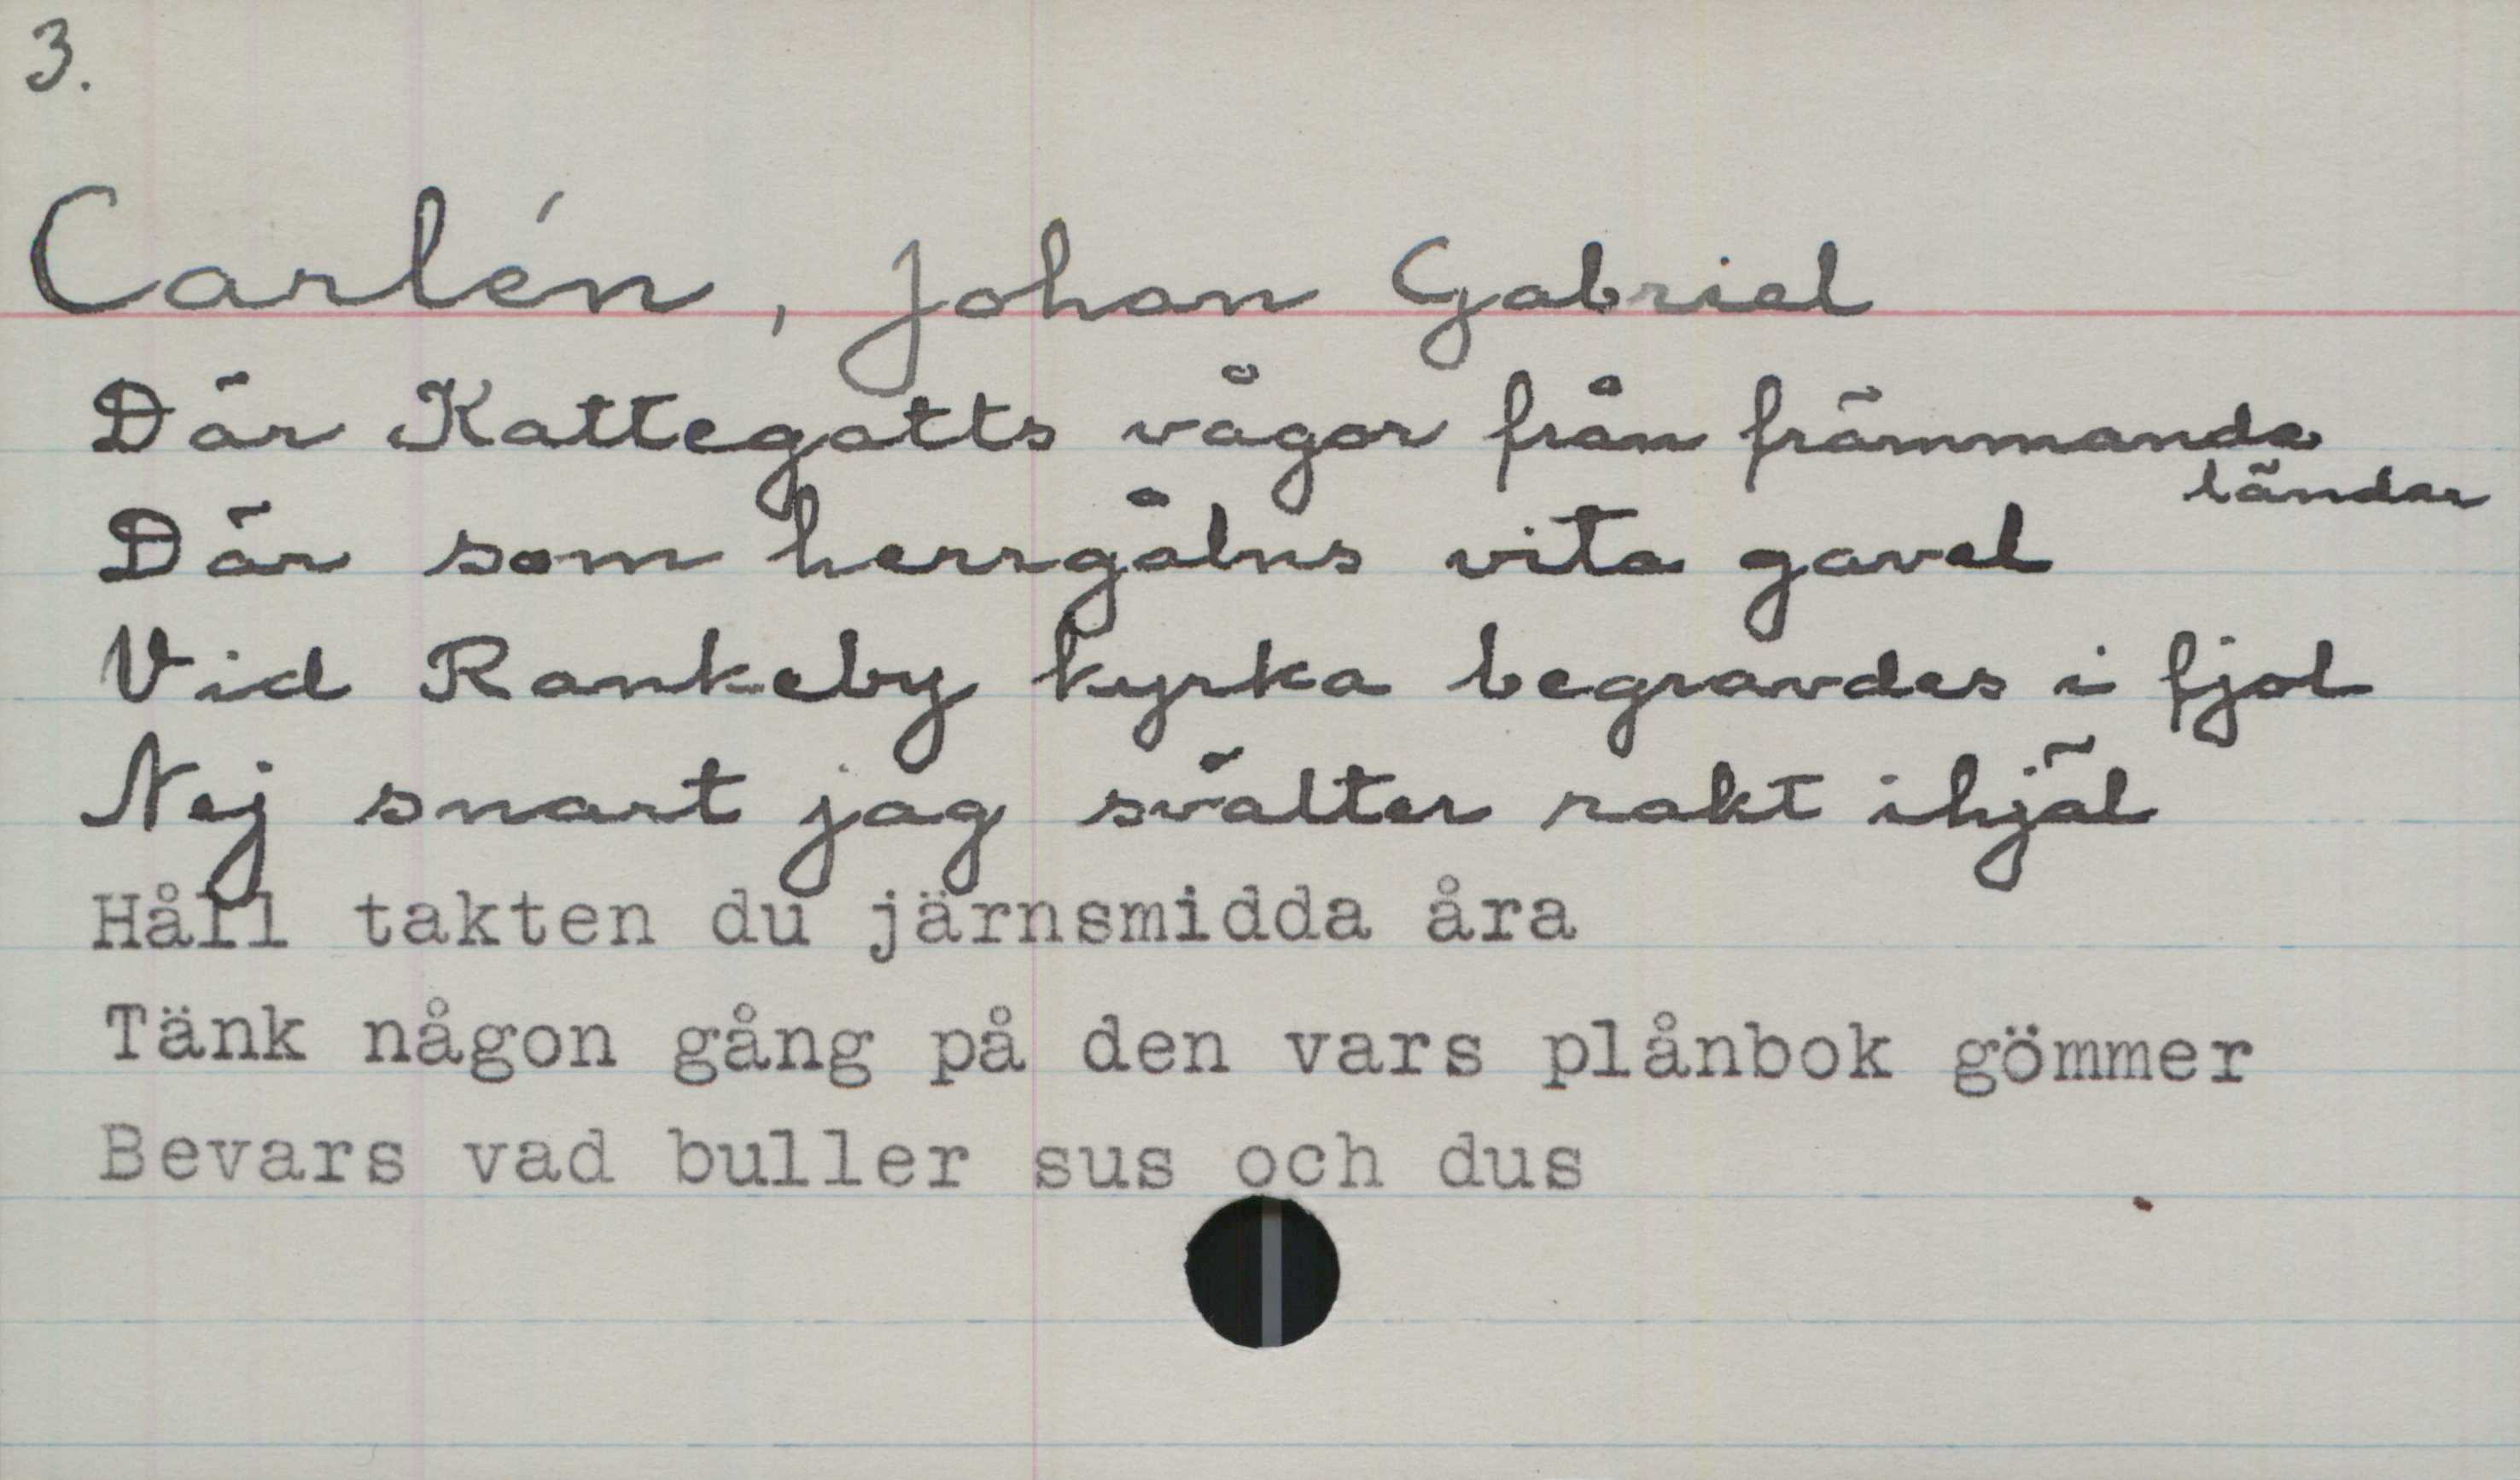 3.
Carlén, Johan Gabriel
Där Kattegatts vågor från främmande
länder
Där som herrgålns vita gavel
Vid Rankeby kyrka begravdes i fjol
Nej snart jag svälter rakt ihjäl
Håll takten du järnsmidda åra
Tänk någon gång på den vars plånbok gömmer
Bevars vad buller sus och dus